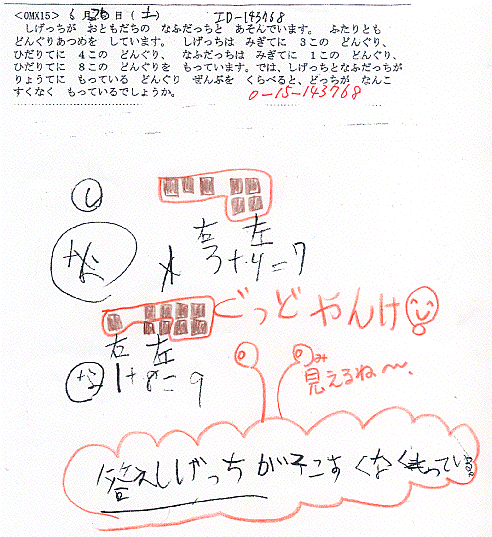 <OMX15> 6月26日(土) ID-143768
しげっちが おともだちの なふだっちと あそんでいます。 ふたりとも
どんぐりあつめを しています。 しげっちは みぎてに 3この どんぐり、
ひだりてに 4この どんぐり、 なふだっちは みぎてに 1この どんぐり、
ひだりてに 8この どんぐりを もっています。では、しげっちとなふだっちが
りょうてに もっている どんぐり ぜんぶを くらべると、どっちが なんこ
すくなく もっているでしょうか。
0-15-143768
し
右 左
3+4=7
ぐっど やんけ
右 左
な 1+8=9
み
見えるね〜、
答えしげっちが2こすくなくもっている。